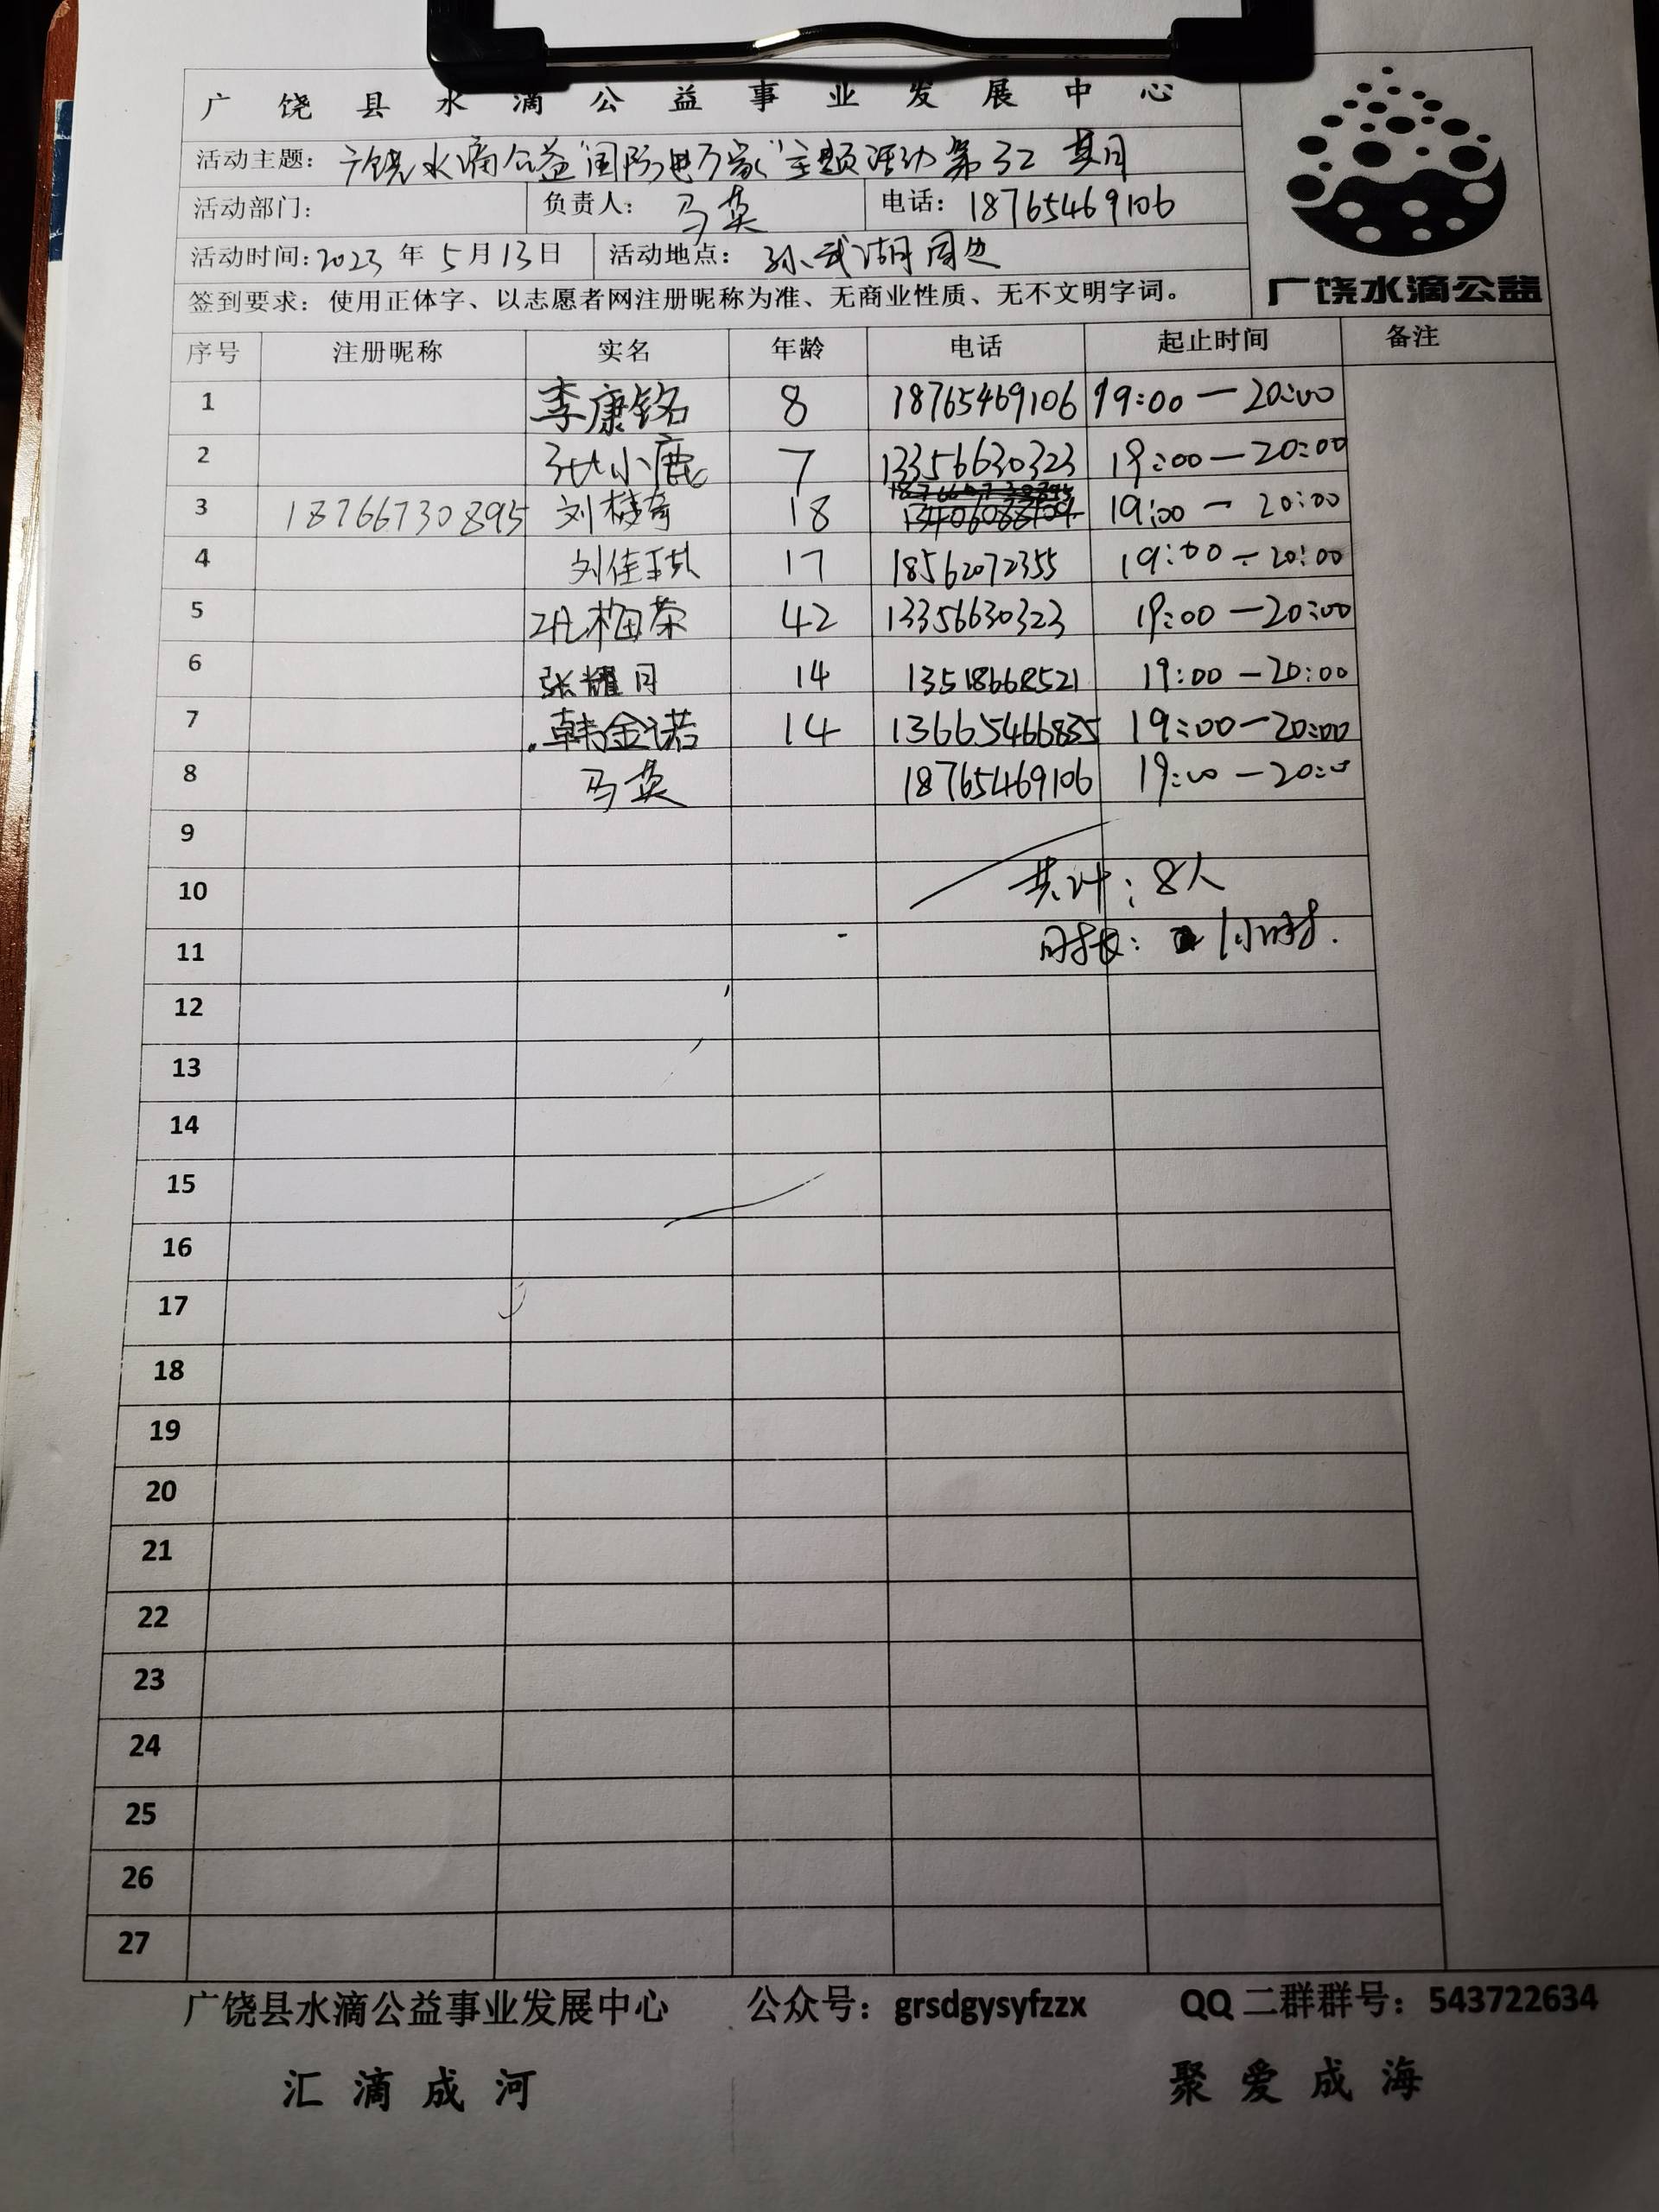 广饶县水滴公益事业发展中心
活动主题：广饶水滴公益"国防进万家"主题活动第32期
活动部门： 负责人：马英 电话：18765469106
活动时间：2023年5月13日 活动地点：孙武湖周边
签到要求：使用正体字、以志愿者网注册昵称为准、无商业性质、无不文明字词。
广饶水滴公益
序号 注册昵称 实名 年龄 电话 起止时间 备注
1 李康铭 8 18765469106 19:00—20:00
2 张小鹿 7 13356630323 19:00—20:00
3 18766730895 刘梓奇 18 19:00—20:00
4 刘佳琪 17 18562072355 19:00—20:00
5 梅荣 42 13356630323 19:00—20:00
6 张耀月 14 13518668521 19:00—20:00
7 韩金诺 14 13665466835 19:00—20:00
8 马英 18765469106 19:00—20:00
9
10 共计：8人
11 时长：1小时.
12
13
14
15
16
17
18
19
20
21
22
23
24
25
26
27
广饶县水滴公益事业发展中心 公众号：grsdgysyfzzx QQ二群群号：543722634
汇滴成河 聚爱成海